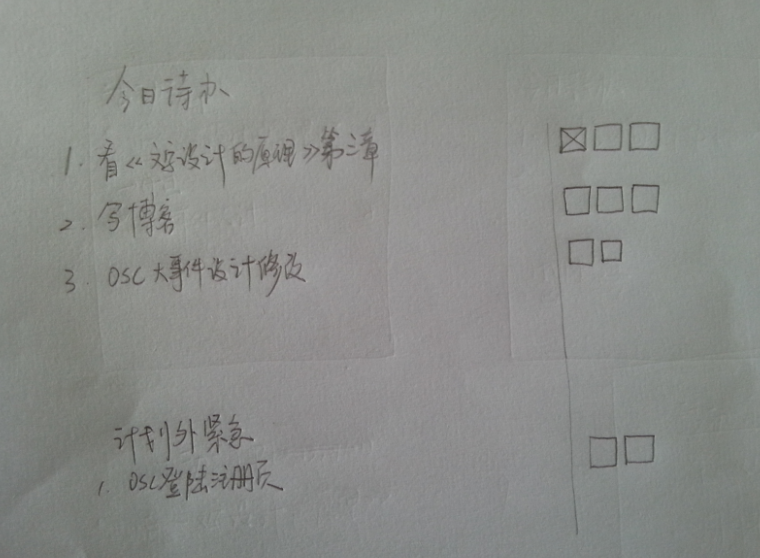 今日待办
1. 看《文字设计的原理》第三章
2. 写博客
3. OSC大事件设计修改
计划外紧急
1. OSC登陆注册页